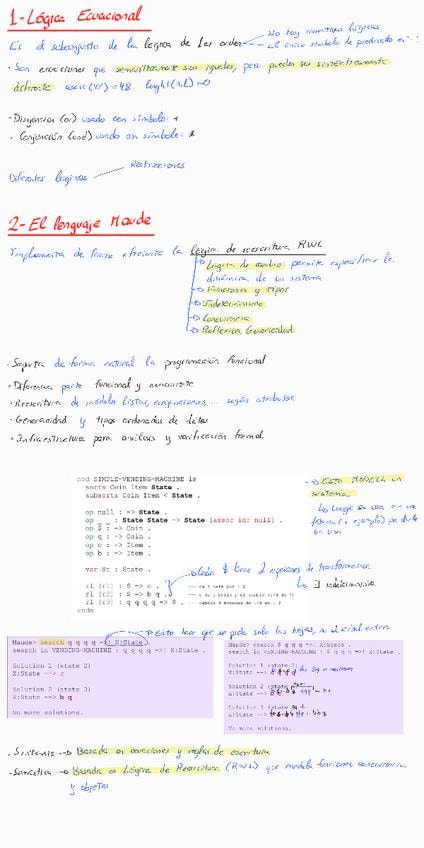 1- Lógica Ecuacional
Es el subconjunto de la lógica de 1er orden
No hay conectivas lógicas
El único símbolo de predicado es
• Son ecuaciones que semánticamente son iguales, pero pueden ser sintácticamente
diferente
• Disyunción (or) usado con símbolo: +
• Conjunción (and) usando con símbolo:
Diferentes lógicas
Restricciones
2- El lenguaje Maude
Implementa de forma eficiente la lógica de reescritura RWL
Lógica de cambio: permite especificar la
dinámica de un sistema
Funciones y tipos
Indeterminismo
Concurrencia
Reflexión, Genericidad
• Soporta de forma natural la programación funcional
• Diferencia parte funcional y concurrente
• Reescritura de módulo listas, conjunciones,... según atributos
• Genericidad y tipos ordenados de datos
• Infraestructura para análisis y verificación formal
mod SIMPLE-VENDING-MACHINE is
sorts Coin Item State .
subsorts Coin Item < State .
op null : -> State .
op _ _ : State State -> State [assoc id: null] .
op $ : -> Coin .
op q : -> Coin .
op c : -> Item .
op b : -> Item .
var St : State .
rl [r1] : $ => c .
rl [r2] : $ => b q .
rl [r3] : q q q q => $ .
endm
Esto MODELA un
sistema
Cada $ tiene 2 opciones de transformación
Indeterminismo
Maude> search q q q q =>! X:State .
search in VENDING-MACHINE : q q q q =>! X:State .
Solution 1 (state 2)
X:State --> c
Solution 2 (state 3)
X:State --> b q
No more solutions.
Maude> search $ q q q =>! X:State .
search in VENDING-MACHINE : $ q q q =>! X:State .
Solution 1
X:State -->
Solution 2
X:State -->
Solution 3
X:State -->
No more solutions.
• Sintaxis --> Basada en ecuaciones y reglas de escritura
• Semántica --> Basada en Lógica de Reescritura (RWL) que modela funciones concurrencia
y objetos